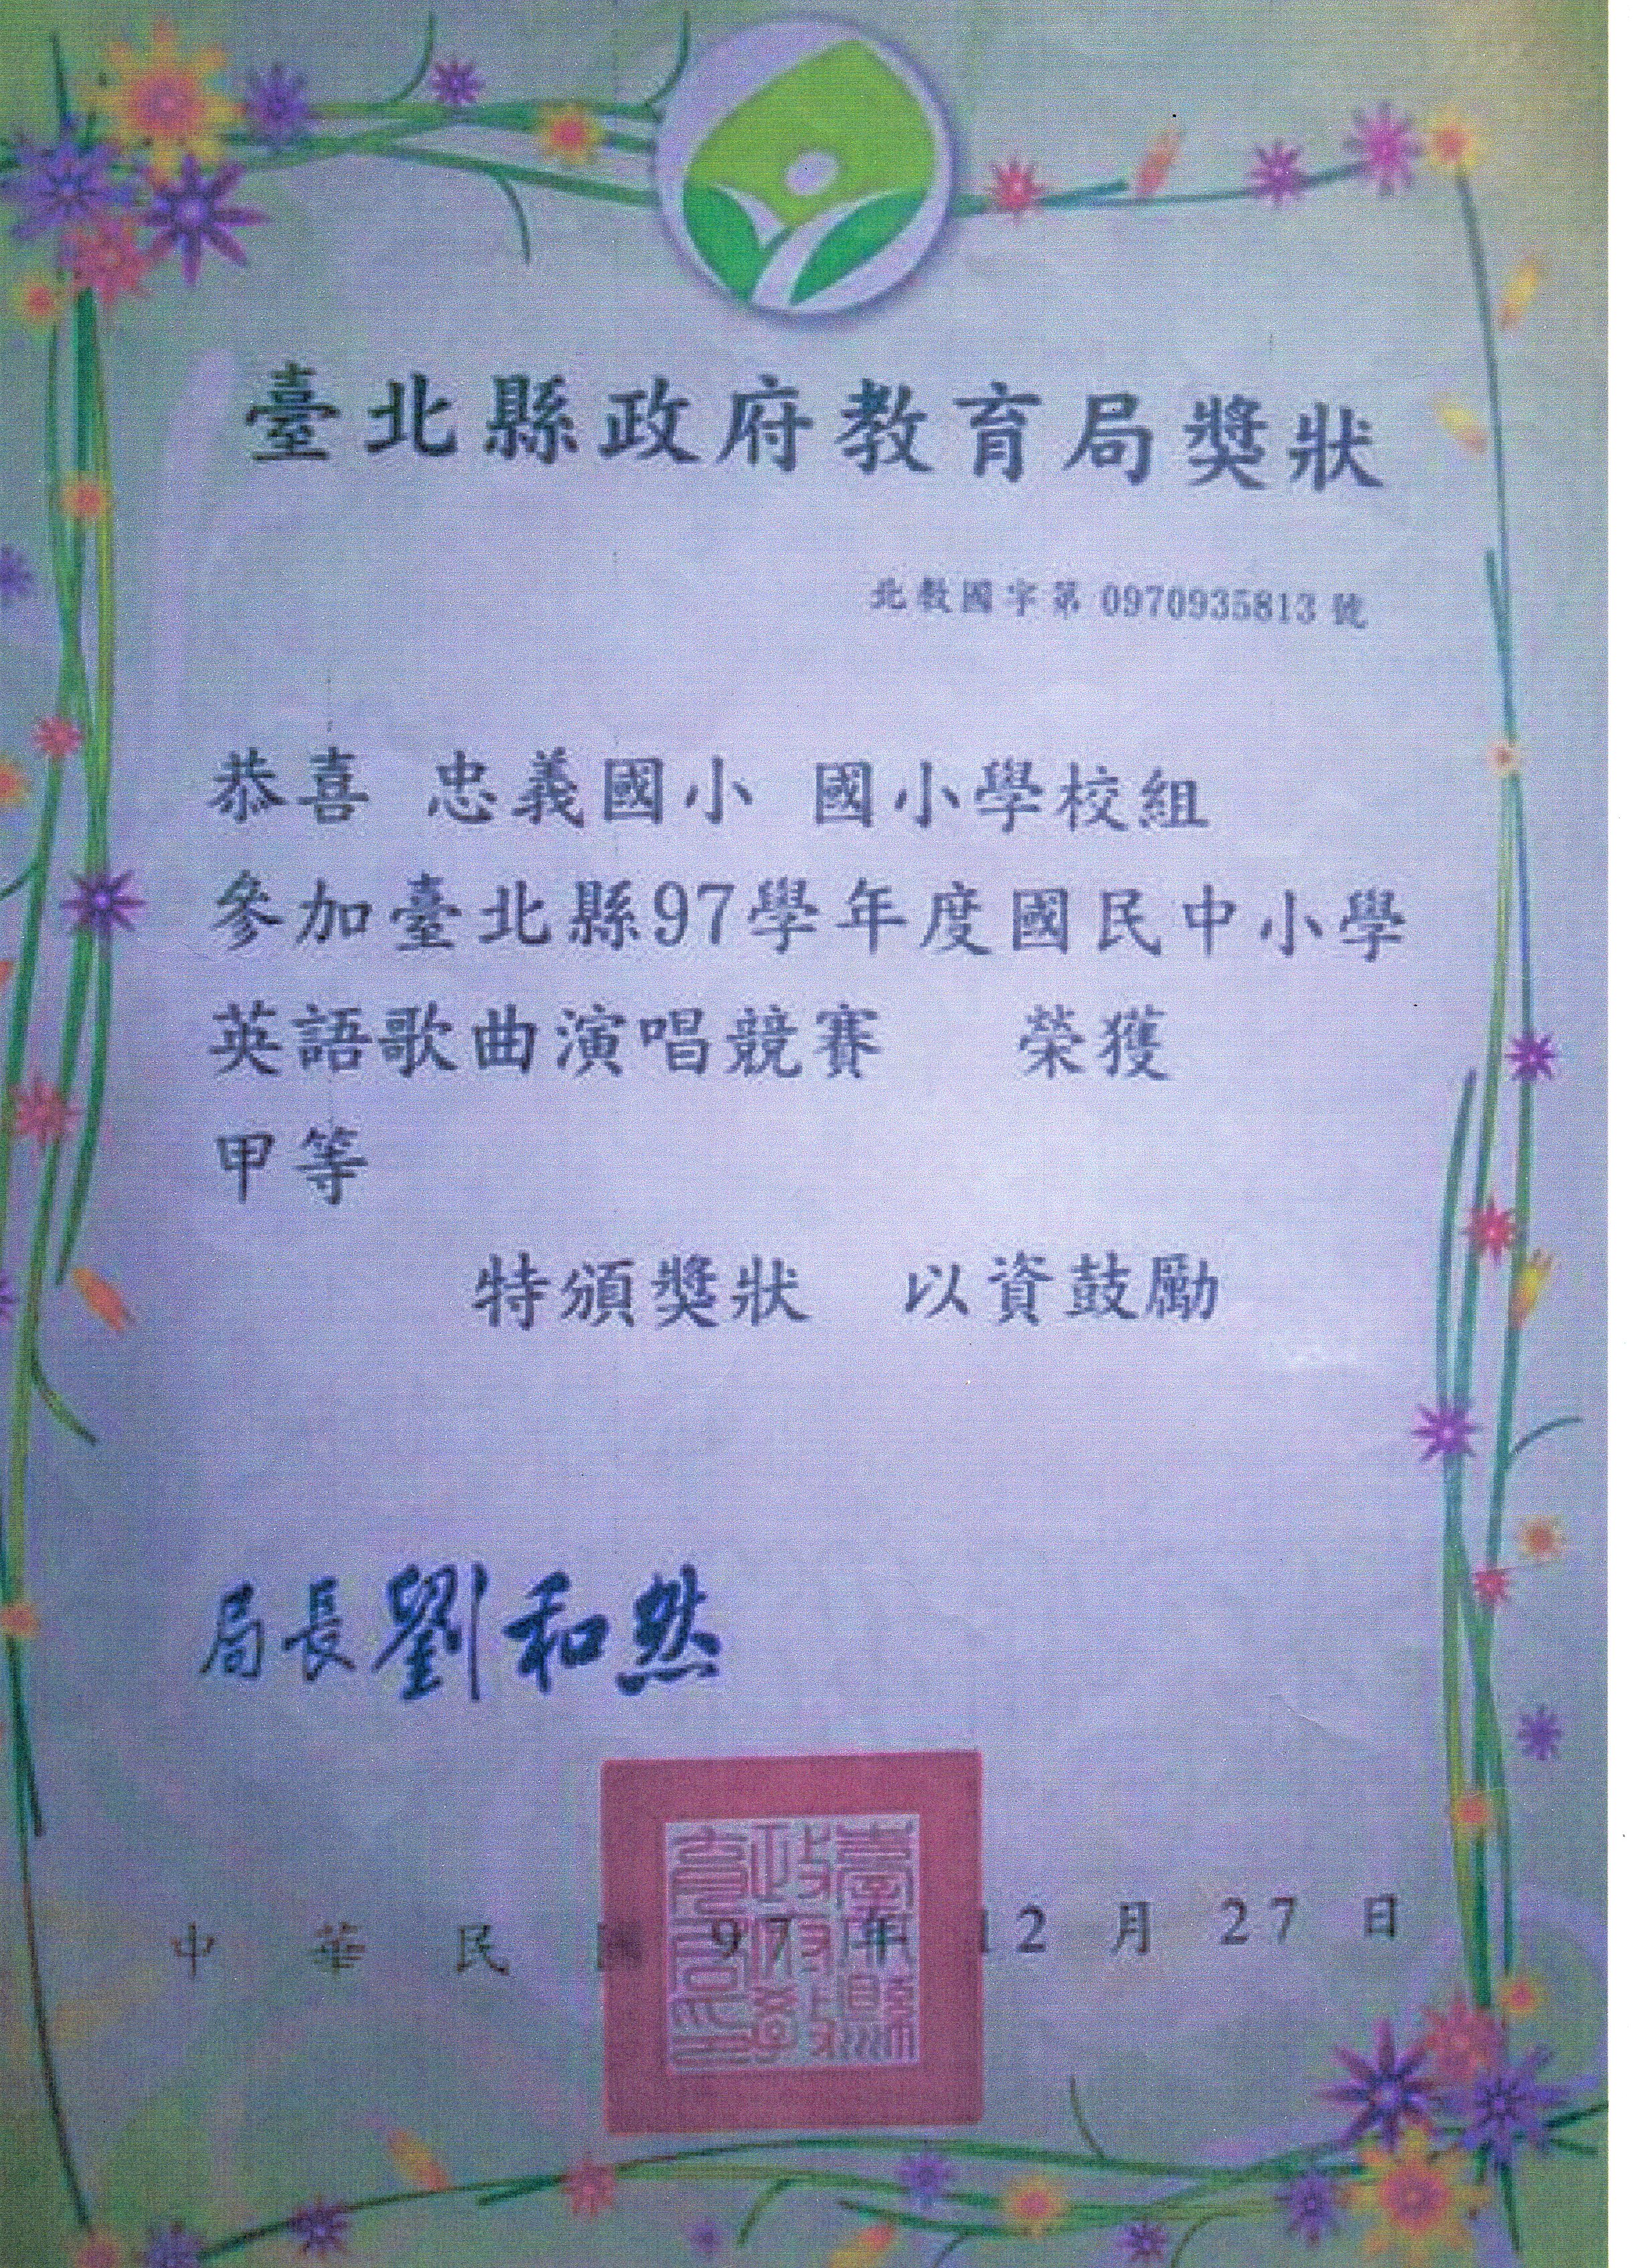 臺北縣政府教育局獎狀
北教國字第 0970935813 號
恭喜 忠義國小 國小學校組
參加臺北縣97學年度國民中小學
英語歌曲演唱競賽 榮獲
甲等
特頒獎狀 以資鼓勵
局長劉和然
中華民國97年12月27日